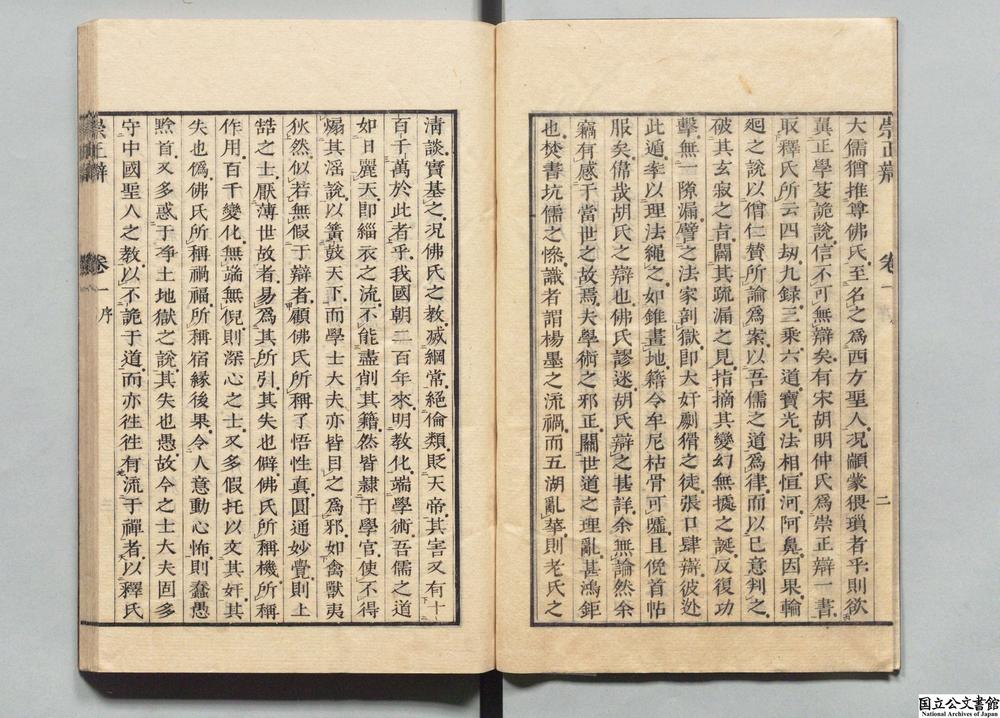 崇正辯 卷一 二
大儒猶推尊佛氏至名之爲西方聖人况顓蒙猥瑣者乎則欲
冀正學芟詭說信不可無辯矣有宋胡明仲氏爲崇正辯一書
取釋氏所云四刼九録三乘六道寶光法相恒河阿鼻因果輪
廻之說以僧仁賛所論爲案以吾儒之道爲律而以已意判之
破其玄寂之肯闢其疏漏之見指摘其變幻無據之誕反復功
擊無一隙漏譬之法家剖獄即大奸劇猾之徒張口肆辯彼迯
此遁率以理法繩之如錐畫地籍令牟尼枯骨可噓且俛首帖
服矣偹哉胡氏之辯也佛氏謬迷胡氏辯之甚詳余無論然余
竊有感于當世之故焉夫學術之邪正關世道之理亂甚鴻鉅
也焚書坑儒之慘識者謂楊墨之流禍而五湖亂華則老氏之
清談實基之况佛氏之教滅綱常絕倫類貶天帝其害又有十
百千萬於此者乎我國朝二百年來明教化端學術吾儒之道
如日麗天即緇衣之流不能盡削其籍然皆隷于學官使不得
煽其滛說以簧鼓天下而學士大夫亦皆目之爲邪如禽獸夷
狄然似若無假于辯者顧佛氏所稱了悟性真圓通妙覺則上
喆之士厭薄世故者易爲其所引其失也僻佛氏所稱機所稱
作用百千變化無端無倪則深心之士又多假托以文其奸其
失也僞佛氏所稱禍福所稱宿縁後果令人意動心怖則蠢愚
黔首又多惑于净土地獄之說其失也愚故今之士大夫固多
守中國聖人之教以不詭于道而亦徃徃有流于禪者以釋氏
崇正辯 卷一 序
国立公文書館
National Archives of Japan